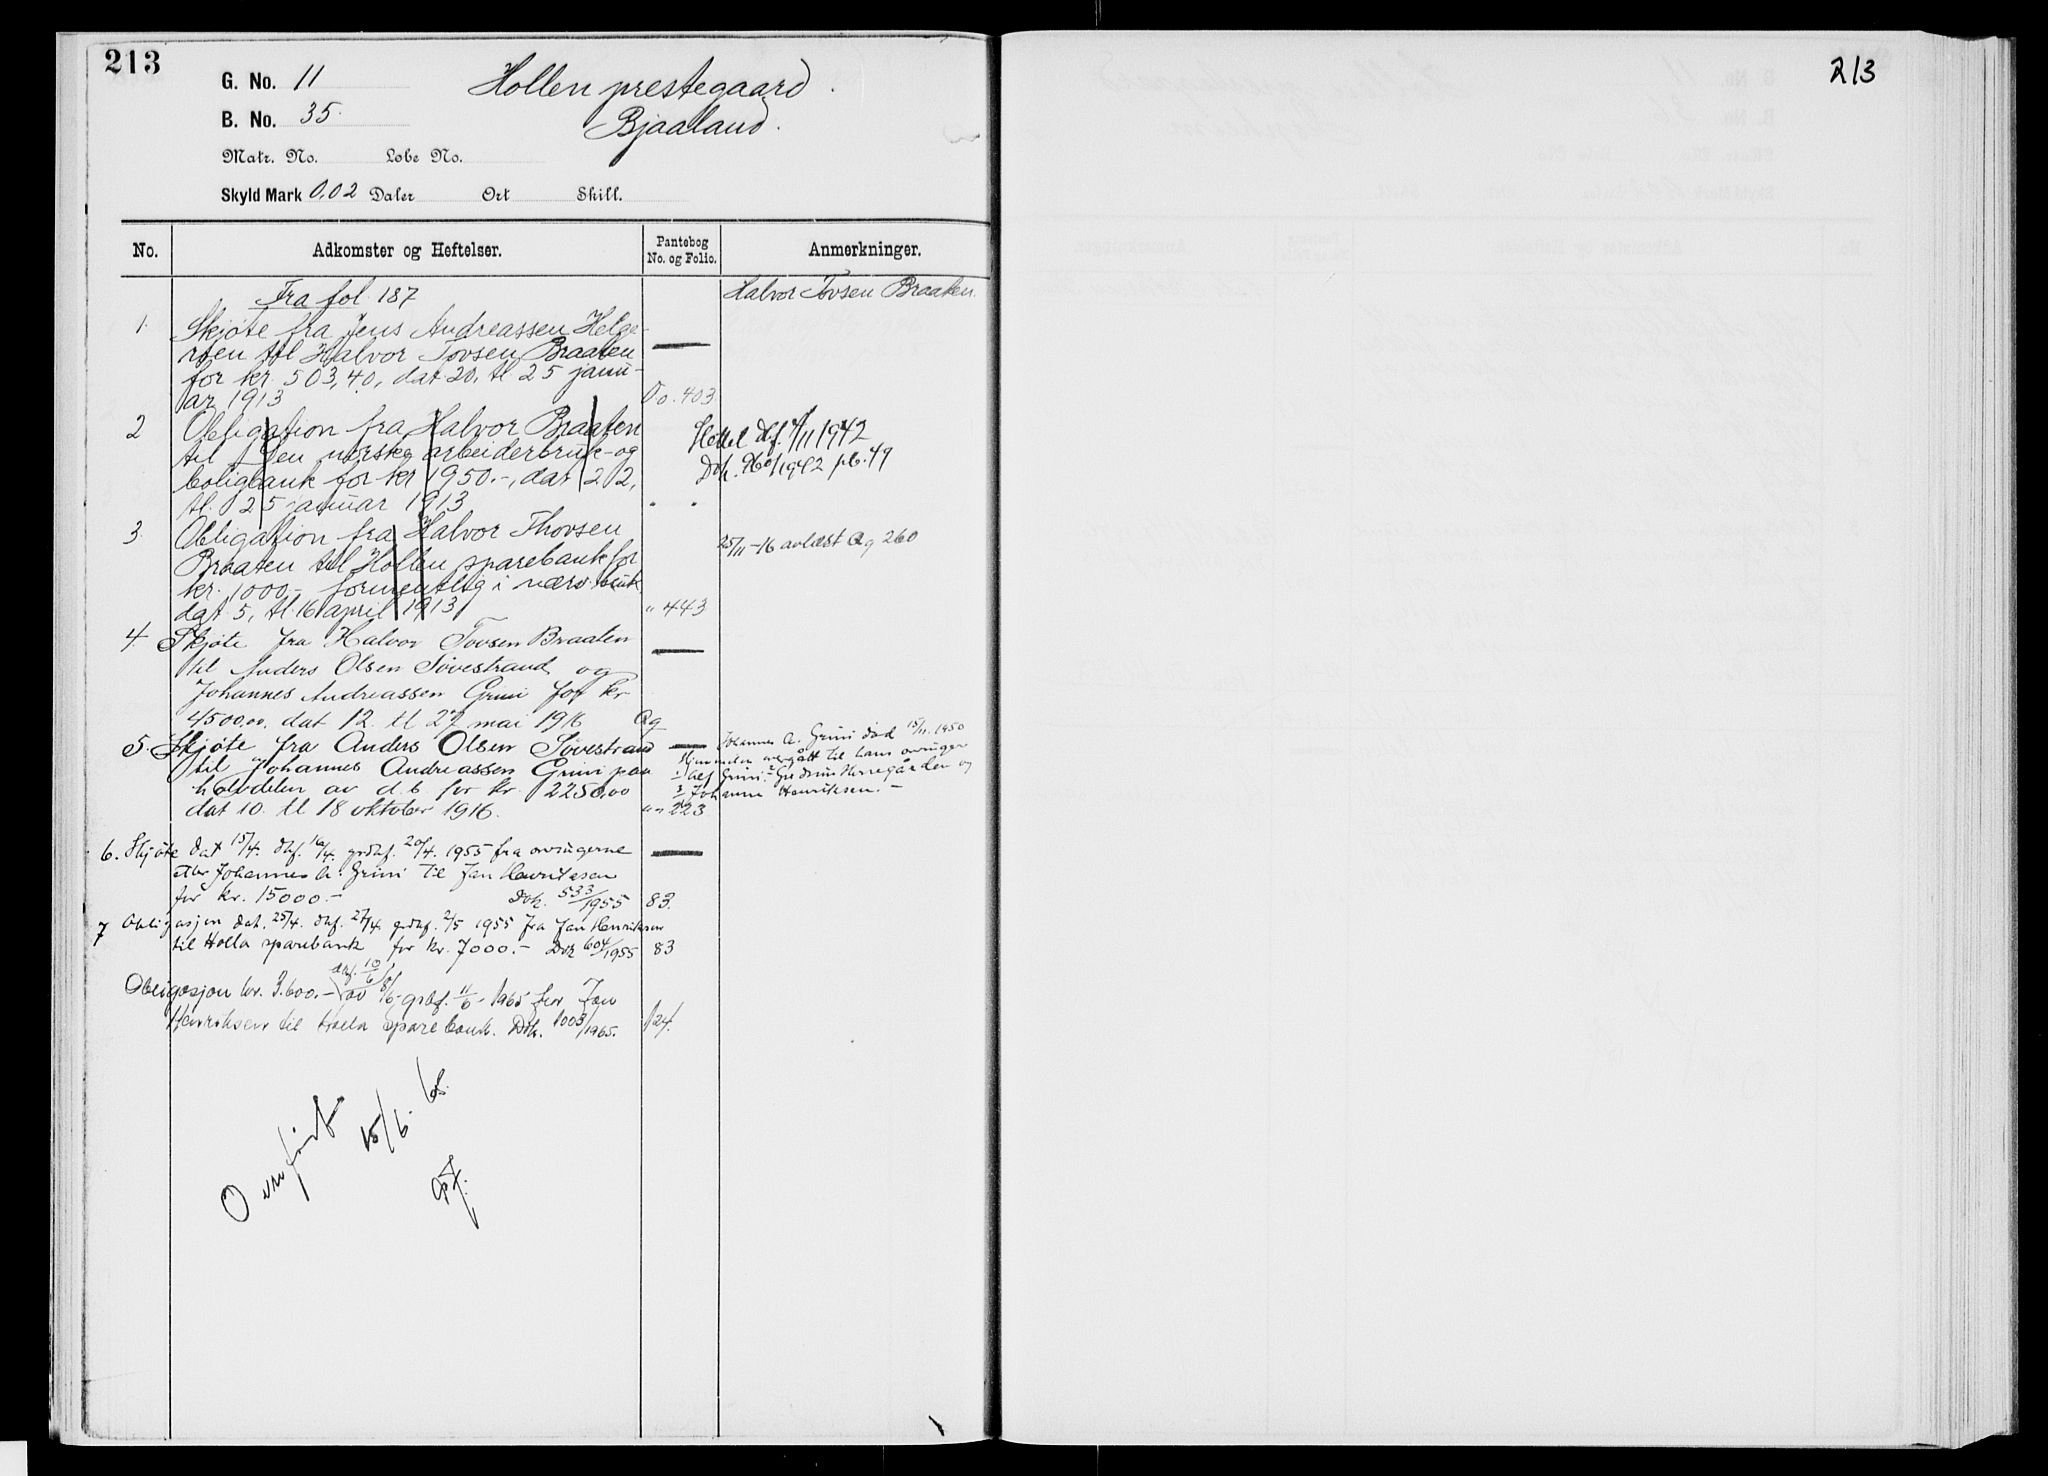 213
G. No. 11 Hollen prestegaard.
B. No. 35. Bjaaland.
Matr. No. Løbe No.
Skyld Mark 0,02 Daler Ort Skill.
No. Adkomster og Heftelser. Pantebog No. og Folio. Anmerkninger.
Fra fol. 187 Halvor Tovsen Braaten.
1. Skjøte fra Jens Andreassen Helge-
rsen til Halvor Tovsen Braaten —
for kr. 503,40, dat 20, tl 25 janu-
ar 1913 Do. 403
2 Obligation fra Halvor Braaten
til Den norske arbeiderbruk- og
boligbank for kr 1950.-, dat 22,
tl. 25 januar 1913 " "
Slettet dbf. 4/11 1942
Dok. 960/1942 pb. 49
3. Obligation fra Halvor Thovsen
Braaten til Hollen sparebank for
kr. 1000,- formentlig i nærv. bruk
dat. 5, tl. 16 april 1913 " 443
25/11-16 avlæst Qq 260
4. Skjøte fra Halvor Tovsen Braaten
til Anders Olsen Søvestrand og —
Johannes Andreassen Grini for kr
4500,00, dat 12. tl 27 mai 1916 Qq
5. Skjøte fra Anders Olsen Søvestrand —
til Johannes Andreassen Grini paa
halvdelen av d.b for kr. 2250,00
dat 10. tl 18 oktober 1916. " " 223
Johannes A. Grini død 15/11. 1950
Hjemmelen overgått til hans arvinger
1 Alf Grini. 2 Gudrun Herregården og
3 Johanne Henriksen. -
6. Skjøte dat 15/4. dbf. 16/4. grbf. 20/4. 1955 fra arvingerne —
etter Johannes A. Grini til Jan Henriksen
for kr. 15000.- Dok. 533/1955 83.
7 Obligasjon dat. 25/4. dbf. 27/4 grbf. 2/5 1955 fra Jan Henriksen
til Holla sparebank for kr. 7000.- Dok 604/1955 83
dbf. 10/6
Obligasjon kr. 3.600.- av 8/6- grbf. 11/6- 1965 fra Jan
Henriksen til Holla sparebank. Dok. 1003/1965. 124.
Overført 15/6. 68.
213